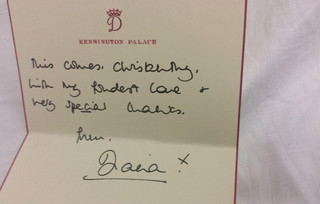 D
KENSINGTON PALACE
This comes, Christening,
with my fondest love &
very special thanks.
from,
Diana x